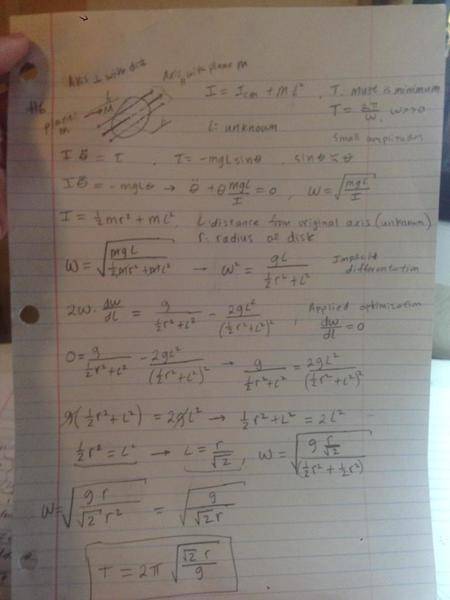 #6
Axis ⊥ with disk
Axis with plane m
plane: m
L
M
I = I_cm + mL² , T. must is minimum
T = 2π/ω , ω→∞
L: unknown
small amplitudes
I θ̈ = τ , τ = -mgL sinθ , sinθ ≈ θ
I θ̈ = -mgLθ → θ̈ + θ mgL/I = 0 , ω = √(mgL/I)
I = ½mr² + mL² , L: distance from original axis (unknown)
r: radius of disk
ω = √(mgL/(½mr² + mL²)) → ω² = gL/(½r² + L²) Implicit differentiation
2ω · dω/dL = g/(½r² + L²) - 2gL²/(½r² + L²)² , Applied optimization dω/dL = 0
0 = g/(½r² + L²) - 2gL²/(½r² + L²)² → g/(½r² + L²) = 2gL²/(½r² + L²)²
g(½r² + L²) = 2gL² → ½r² + L² = 2L²
½r² = L² → L = r/√2 , ω = √(g r/√2/(½r² + ½r²))
ω = √(g r/(√2 r²)) = √(g/(√2 r))
T = 2π √(√2 r/g)